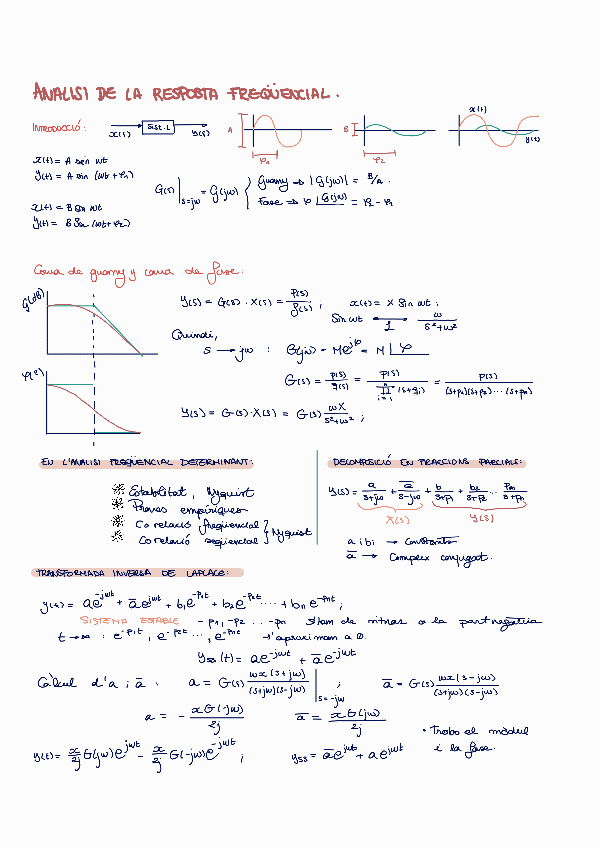 ANALISI DE LA RESPOSTA FREQÜENCIAL.
INTRODUCCIÓ:
x(t) Sist. L y(s)
A φ₁
B φ₂
x(t) y(t)
x(t) = A sin wt
y(t) = A sin (wt + φ₁)
x(t) = B sin wt
y(t) = B sin (wt + φ₂)
G(s)|s=jw = G(jw) { Guany ⇒ |G(jw)| = B/A.
Fase ⇒ φ |G(jw) = φ₂ - φ₁
Corva de guany y corva de fase:
G(dB)
φ(°)
Y(s) = G(s) · X(s) = P(s)/q(s) ; x(t) = X Sin wt ;
Sin wt ⟷ w/(s²+w²)
Quindi,
s → jw : G(jw) = Me^jφ = M |φ
G(s) = p(s)/q(s) = p(s)/∏(s+qi) = p(s)/((s+p₁)(s+p₂)···(s+pn))
Y(s) = G(s) · X(s) = G(s) wX/(s²+w²) ;
EN L'ANALISI FREQÜENCIAL DETERMINANT:
Estabilitat, Nyquist
Proves empíriques
Co relació freqüencial
Co relació seqüencial } Nyquist
DECOMPOSICIÓ EN FRACCIONS PARCIALS:
Y(s) = a/(s+jw) + a̅/(s-jw) + b/(s+p₁) + b₂/(s+p₂) ··· pn/(s+pn)
X(s) Y(s)
a i bi → Constants
a̅ → Complex conjugat.
TRANSFORMADA INVERSA DE LAPLACE:
y(t) = ae^-jwt + a̅e^jwt + b₁e^-p₁t + b₂e^-p₂t ···· + bn e^-pnt ;
SISTEMA ESTABLE -p₁, -p₂ ... -pn s'han de mirar a la part negativa
t → ∞ : e^-p₁t, e^-p₂t ···, e^-pnt → s'aproximam a 0.
yss(t) = ae^-jwt + a̅e^jwt
Càlcul d'a i a̅ : a = G(s) wx(s+jw)/((s+jw)(s-jw)) |s=-jw a̅ = G(s) wx(s-jw)/((s+jw)(s-jw))
a = - xG(-jw)/2j a̅ = xG(jw)/2j
• Trobo el mòdul
i la fase.
y(t) = x/2j G(jw)e^jwt - x/2j G(-jw)e^-jwt ; yss = a̅e^jwt + ae^jwt